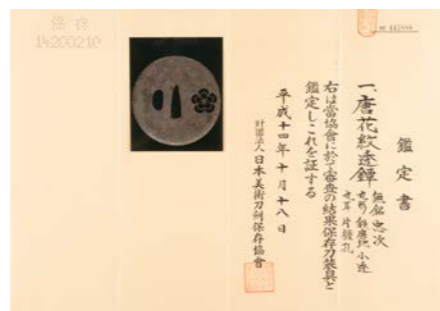 鑑定書
一、唐花紋透鐔 無銘 忠次
丸形 鉄磨地 小透
丸耳 片櫃孔
右は當協會に於て審査の結果保存刀装具と
鑑定しこれを証する
平成十四年十月十八日
財團法人日本美術刀剣保存協會
保存
14200210